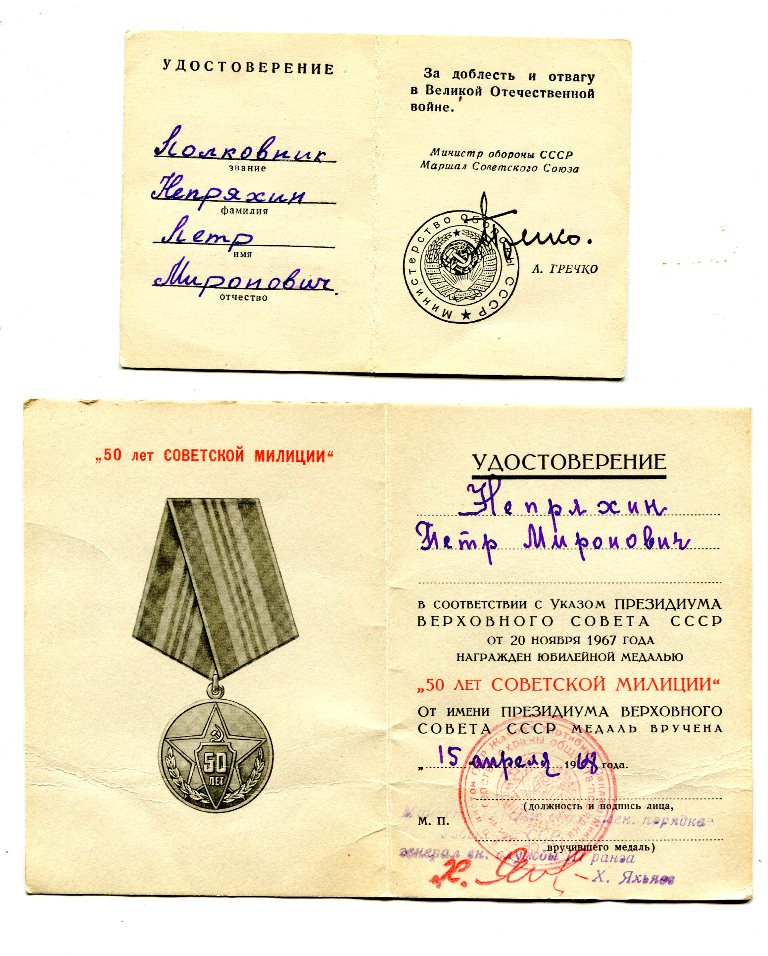 УДОСТОВЕРЕНИЕ
Полковник
звание
Непряхин
фамилия
Петр
имя
Миронович.
отчество
За доблесть и отвагу
в Великой Отечественной
войне.
Министр обороны СССР
Маршал Советского Союза
Министерство Обороны СССР
А. ГРЕЧКО
„50 лет СОВЕТСКОЙ МИЛИЦИИ“
50
ЛЕТ
УДОСТОВЕРЕНИЕ
Непряхин
Петр Миронович
В СООТВЕТСТВИИ С УКАЗОМ ПРЕЗИДИУМА
ВЕРХОВНОГО СОВЕТА СССР
ОТ 20 НОЯБРЯ 1967 ГОДА
НАГРАЖДЕН ЮБИЛЕЙНОЙ МЕДАЛЬЮ
„50 ЛЕТ СОВЕТСКОЙ МИЛИЦИИ“
ОТ ИМЕНИ ПРЕЗИДИУМА ВЕРХОВНОГО
СОВЕТА СССР МЕДАЛЬ ВРУЧЕНА
„15 апреля 1968 года.
(должность и подпись лица,
М. П. порядка
вручившего медаль)
генерал вн. службы ранга
Х. Яхъяев